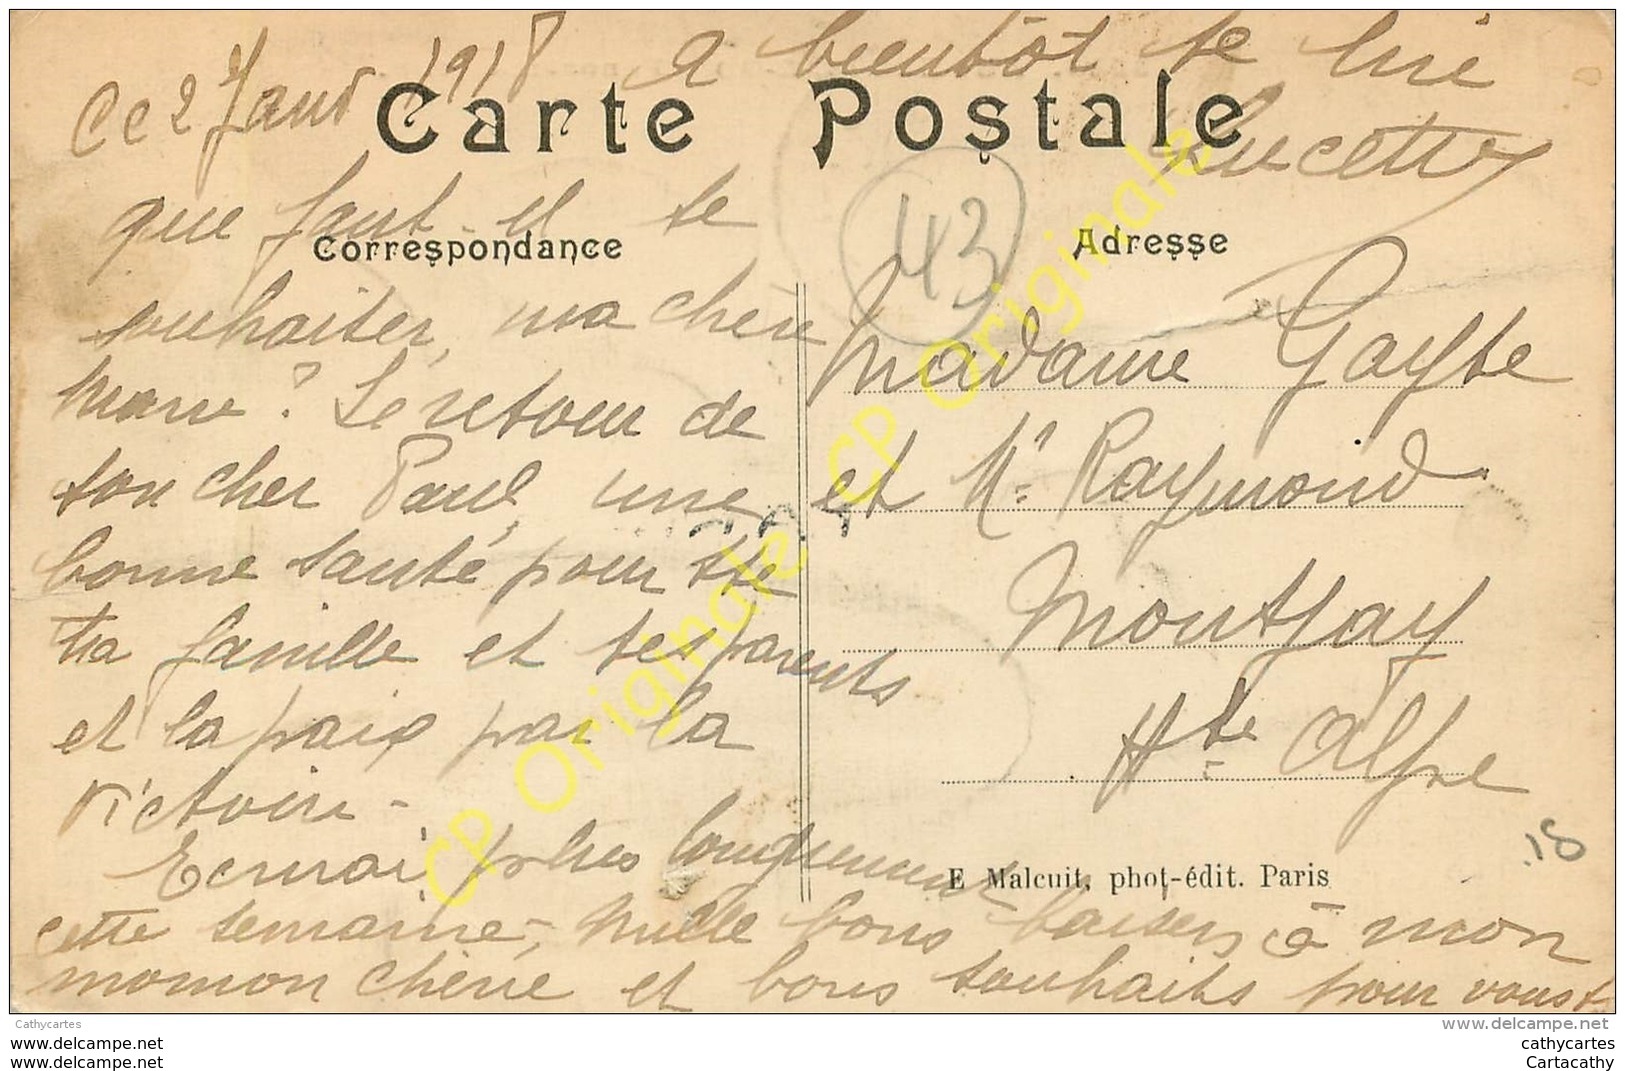 Ce 2 Janv 1918
A bientôt te lire
Lucette
Carte Postale
Correspondance
Adresse
43
que faut-il te
souhaiter, ma chère
Marie? Le retour de
ton cher Paul, une
bonne santé pour tte
ta famille et tes parents
et la paix par la
victoire -
Ecrirai plus longuement
cette semaine -, mille bons baisers à mon
momon chérie et bons souhaits pour vous
Madame Gayte
et Mr Raymond
Montjay
Hte Alpe
E Malcuit, phot-édit. Paris
18
CP Originale CP Originale CP Originale
Cathycartes
www.delcampe.net
www.delcampe.net
www.delcampe.net
cathycartes
Cartacathy